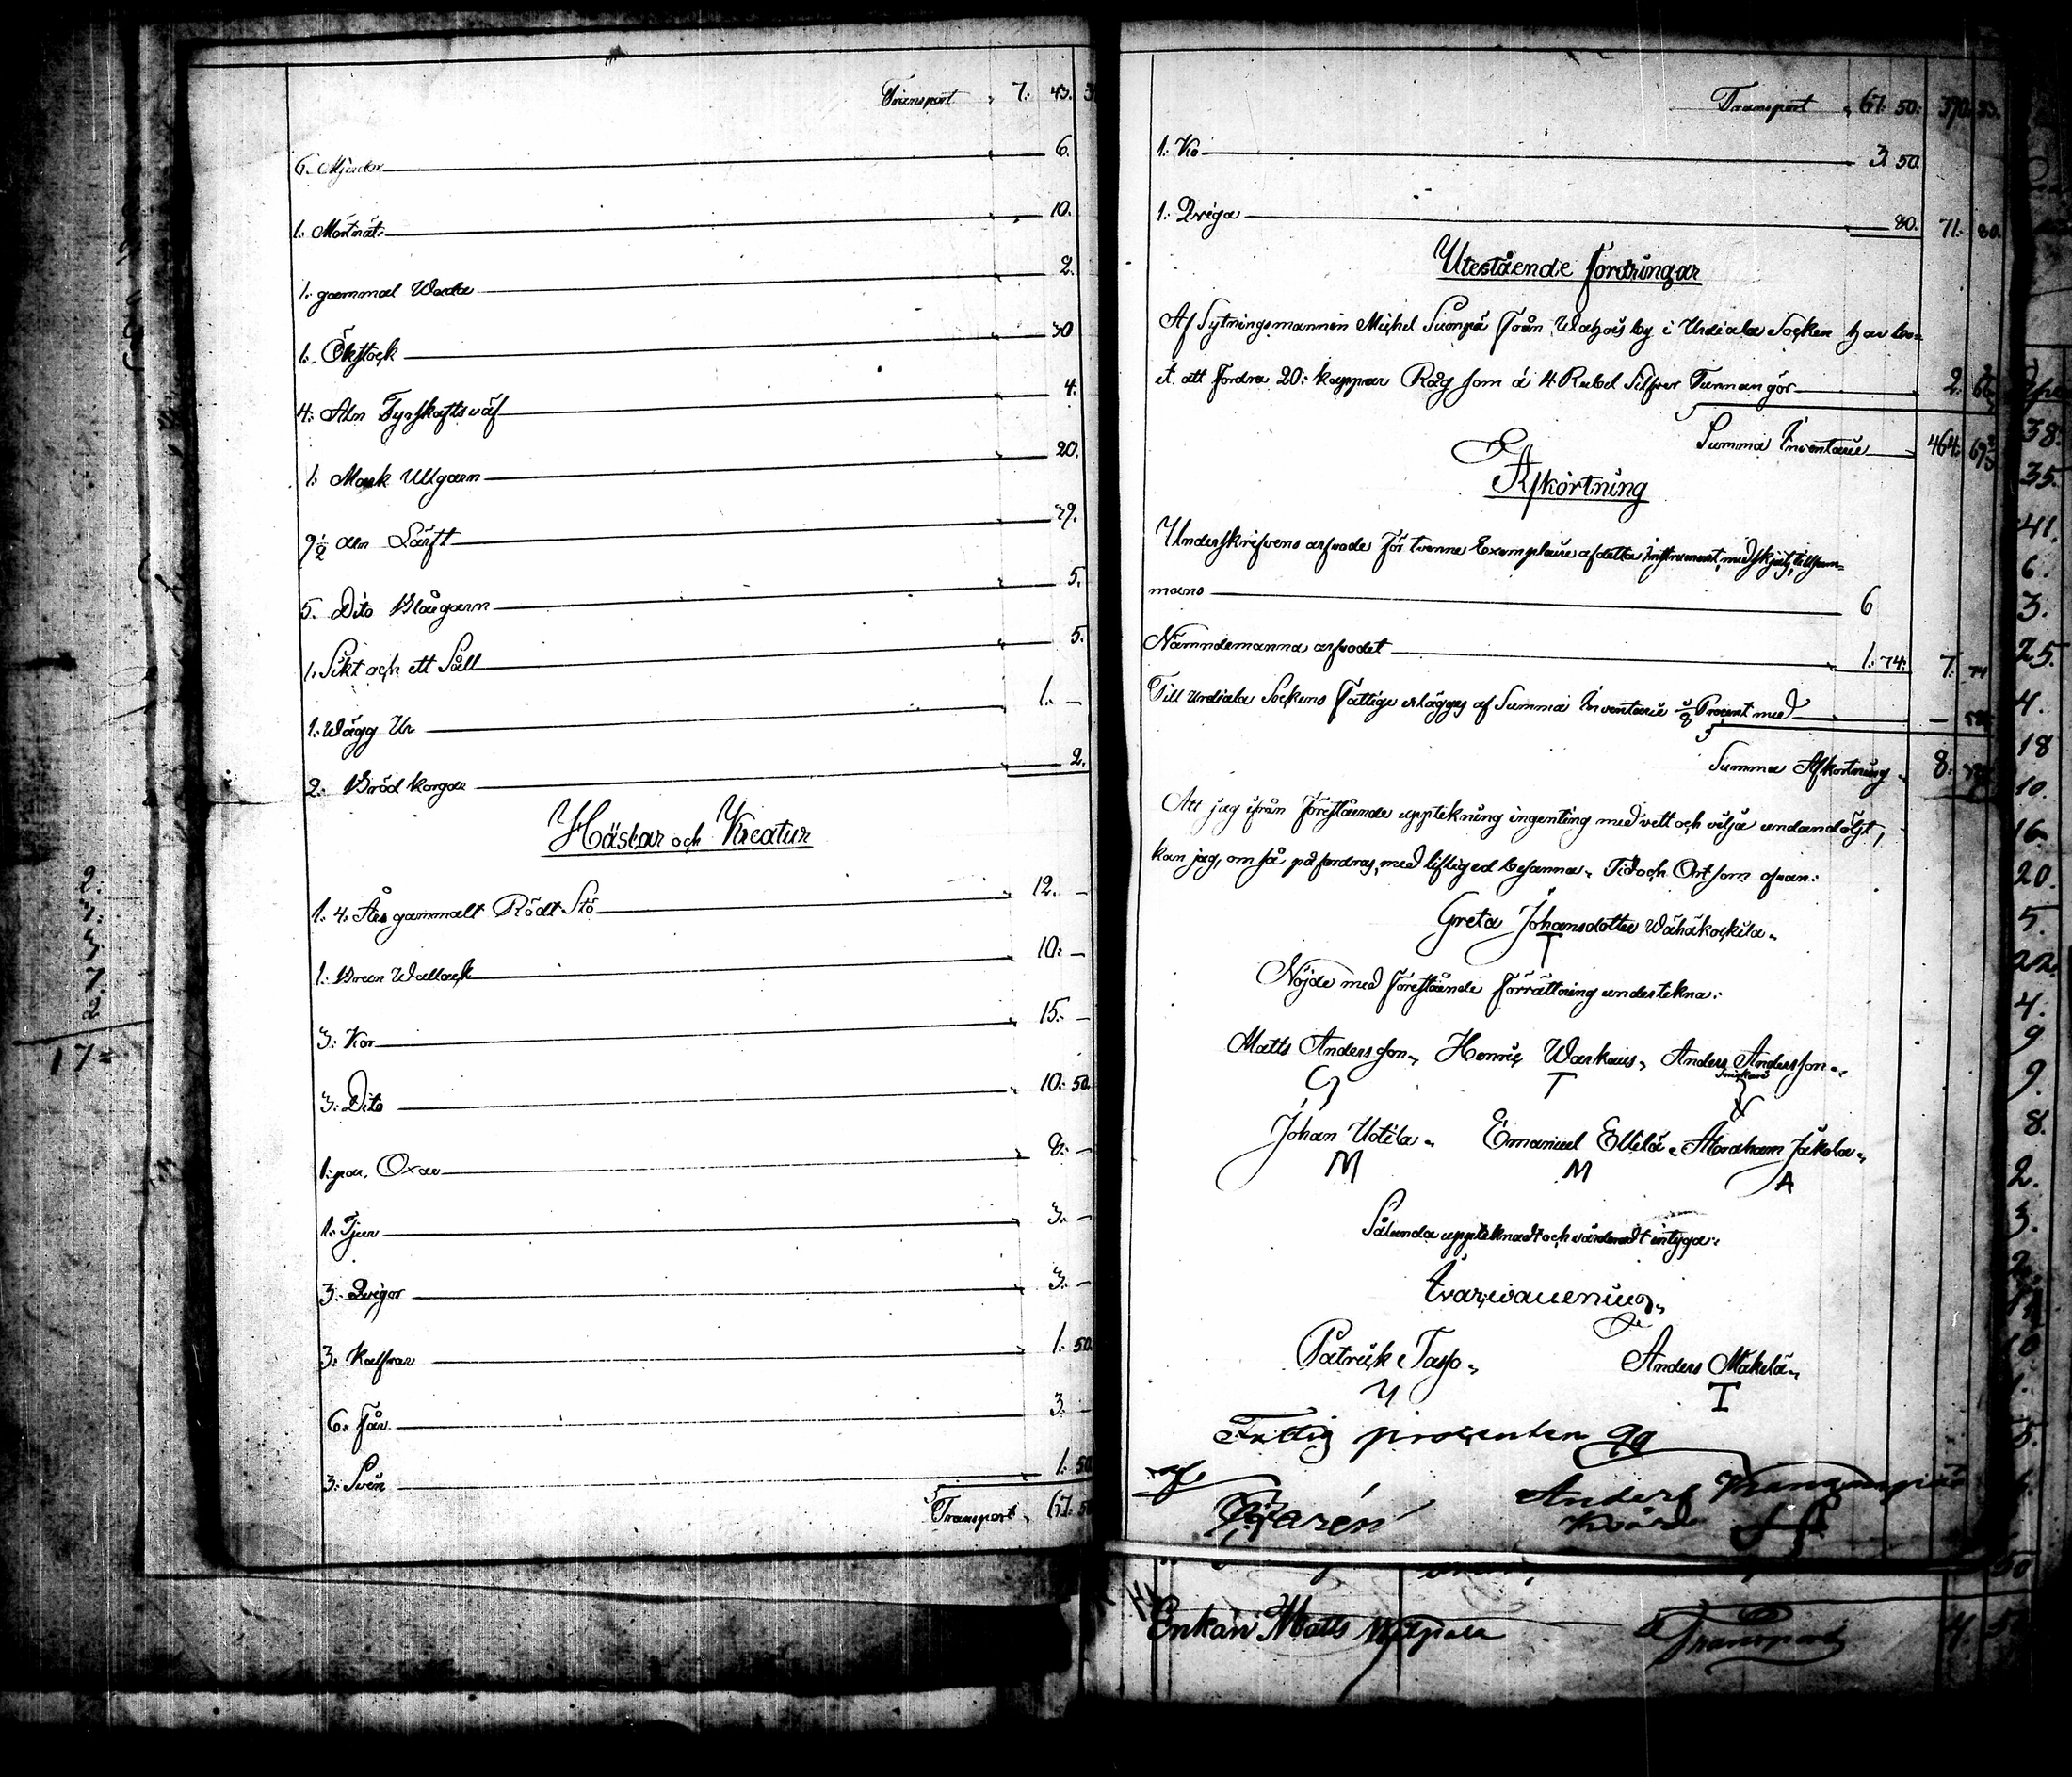 Transport 7. 43.
6. Mjerdor 6.
1. Mörtnät 10.
1. gammal Wada 2.
1. Ökstock 30
4. Aln Tyrskaftsväf 4.
1. Mark Ullgarn 20.
9½ aln Lärft 39.
5. Dito Blårgarn 5.
1. Sikt och ett Såll 5.
1. Wägg Ur 1. –
2. Bröd korgar 2.
Hästar och Kreatur
1. 4. Års gammalt Rödt Stö 12. –
1. Brun Wallack 10. –
3. Kor 15. –
3. Dito 10. 50.
1. par. Oxar 8. –
1. Tjur 3. –
3. Qvigor 3. –
3. Kalfvar 1. 50.
6. Får 3. –
3. Svin 1. 50
Transport 67. 50
2.
3.
3.
7.
2
17=
Transport 67. 50. 390. 23.
1. Ko 3. 50.
1. Qviga 80. 71. 80.
Utestående fordringar
Af Sytningsmannen Michel Suonpä från Wahois by i Urdiala Socken har bo=
et att fordra 20. kappar Råg som á 4 Rubel Silfver Tunnan gör 2.
Summa Inventarii 464. 69⅔
Afkortning
Underskrifvens arfvode för tvenne Exemplair af detta Instrument, med skjuts, tillsam=
mans 6
Nämndemanna arfvodet 1. 74. 7. 74
Till Urdiala Sockens Fattige erlägges af Summa Inventarii ⅛ Procent med –
Summa Afkortning 8.
Att jag ifrån förestående uppteckning ingenting med vett och vilja undandöljt,
kan jag, om så påfordras, med liflig ed besanna. Tid och Ort som ofvan:
Greta Johansdotter Wähäkoskila
T
Nöjde med förestående förrättning underteckna:
Matts Andersson, Henric Warkaus, Anders Andersson
T
Johan Uotila Emanuel Ellilä Abraham Jakola
M M A
Sålunda upptecknadt och värderadt intyga:
Patrick Tasso Anders Mäkelä
T
Fattig procenten
af
Anders
Enkan Matts
Transport 4. 5